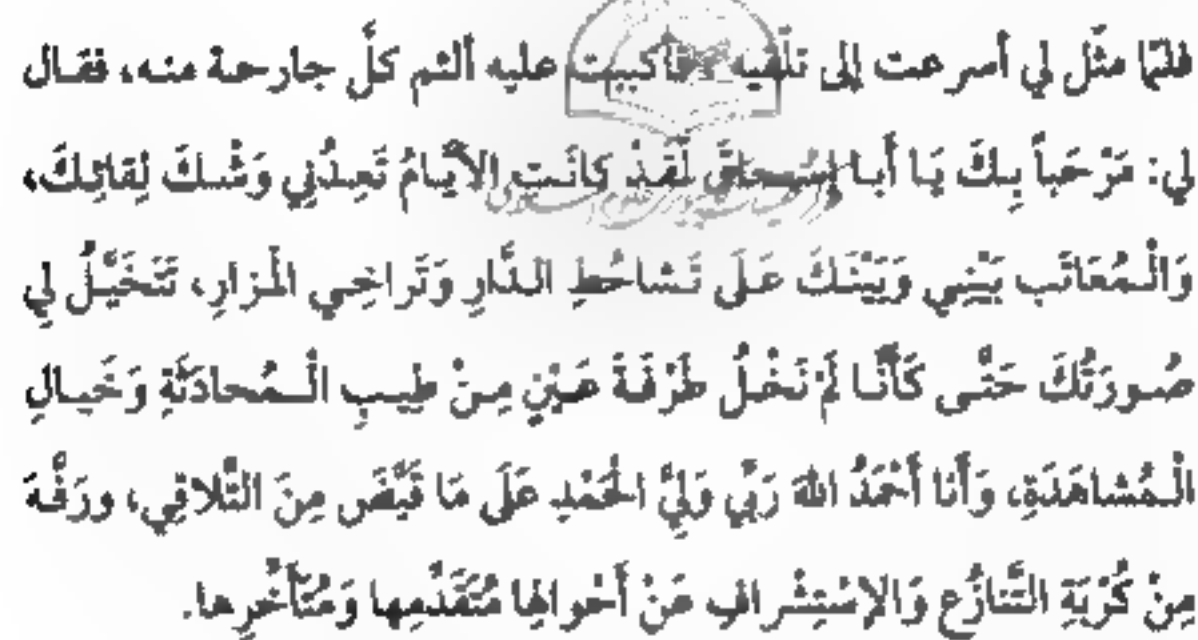 فلمّا مثّل لي أسرعت إلى تلقّيه فأكببت عليه ألثم كلّ جارحة منه، فقال
لي: مَرْحَباً بِكَ يَا أَبا إِسْحاقَ لَقَدْ كانَتِ الأَيّامُ تَعِدُنِي وَشْكَ لِقائِكَ،
وَالْمُعَاتَب بَيْنِي وَبَيْنَكَ عَلَى تَشاحُطِ الدَّارِ وَتَراخِي المَزارِ، تَتَخَيَّلُ لِي
صُورَتُكَ حَتّى كَأَنَّا لَمْ نَخْلُ طَرْفَةَ عَيْنٍ مِنْ طِيبِ الْمُحادَثَةِ وَخَيالِ
الْمُشاهَدَةِ، وَأَنا أَحْمَدُ اللهَ رَبِّي وَلِيَّ الحَمْدِ عَلَى مَا قَيَّضَ مِنَ التَّلاقِي، ورَفَّهَ
مِنْ كُرْبَةِ التَّنازُعِ وَالاِسْتِشْرافِ عَنْ أَحْوالِها مُتَقَدِّمِها وَمُتَأَخِّرِها.